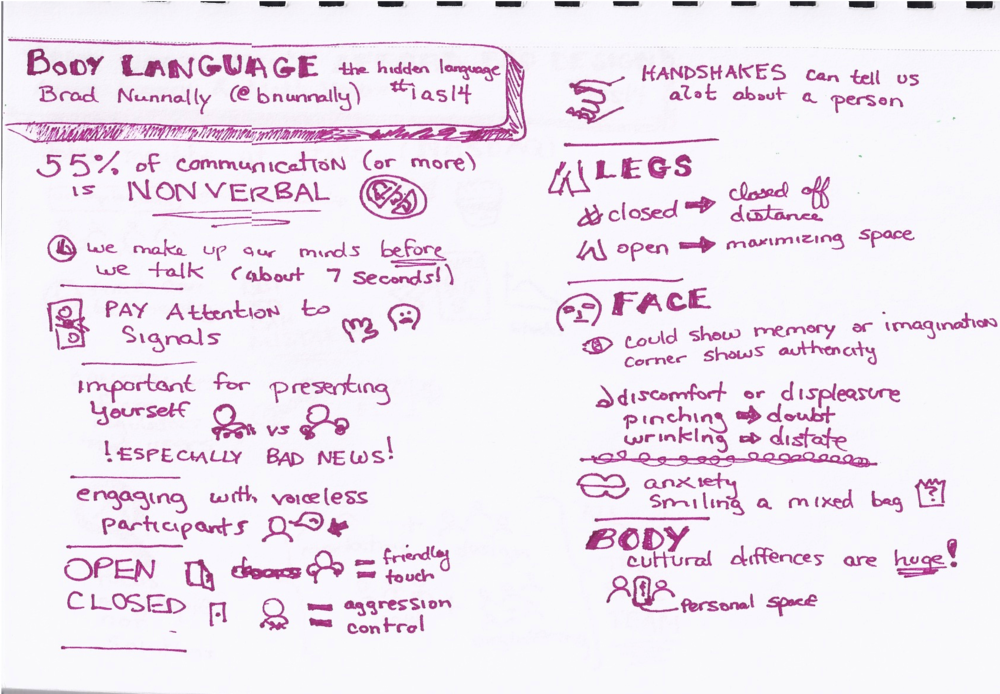 BODY LANGUAGE the hidden language
Brad Nunnally (@bnunnally) #ias14
55% of communication (or more)
is NONVERBAL
we make up our minds before
we talk (about 7 seconds!)
PAY Attention to
Signals
important for presenting
yourself vs
!ESPECIALLY BAD NEWS!
engaging with voiceless
participants
OPEN = friendly
= touch
CLOSED = aggression
= control
HANDSHAKES can tell us
alot about a person
LEGS
closed → closed off
distance
open → maximizing space
FACE
could show memory or imagination
corner shows authencity
discomfort or displeasure
pinching ⇒ doubt
wrinkling ⇒ distate
anxiety
smiling a mixed bag ?
BODY
cultural diffences are huge!
personal space